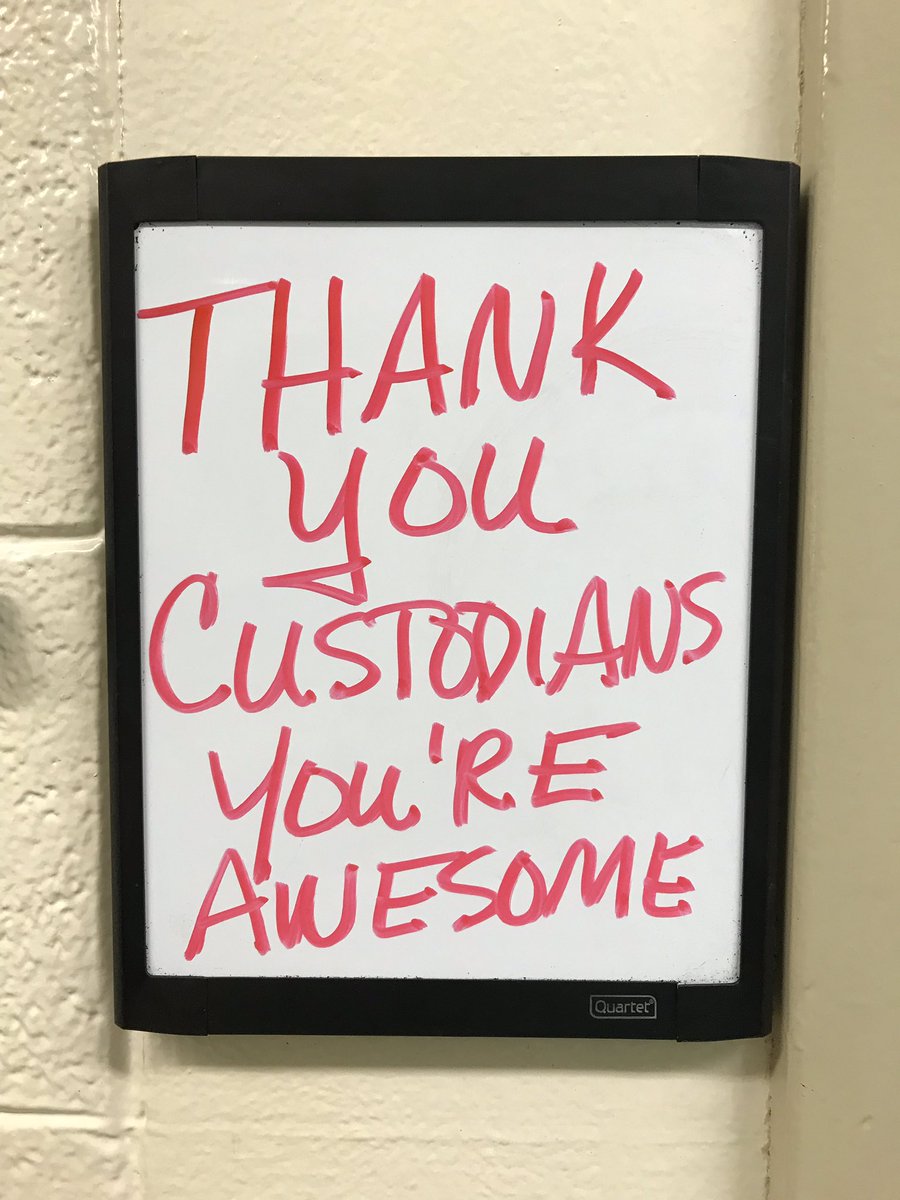 THANK
YOU
CUSTODIANS
YOU'RE
AWESOME
Quartet®